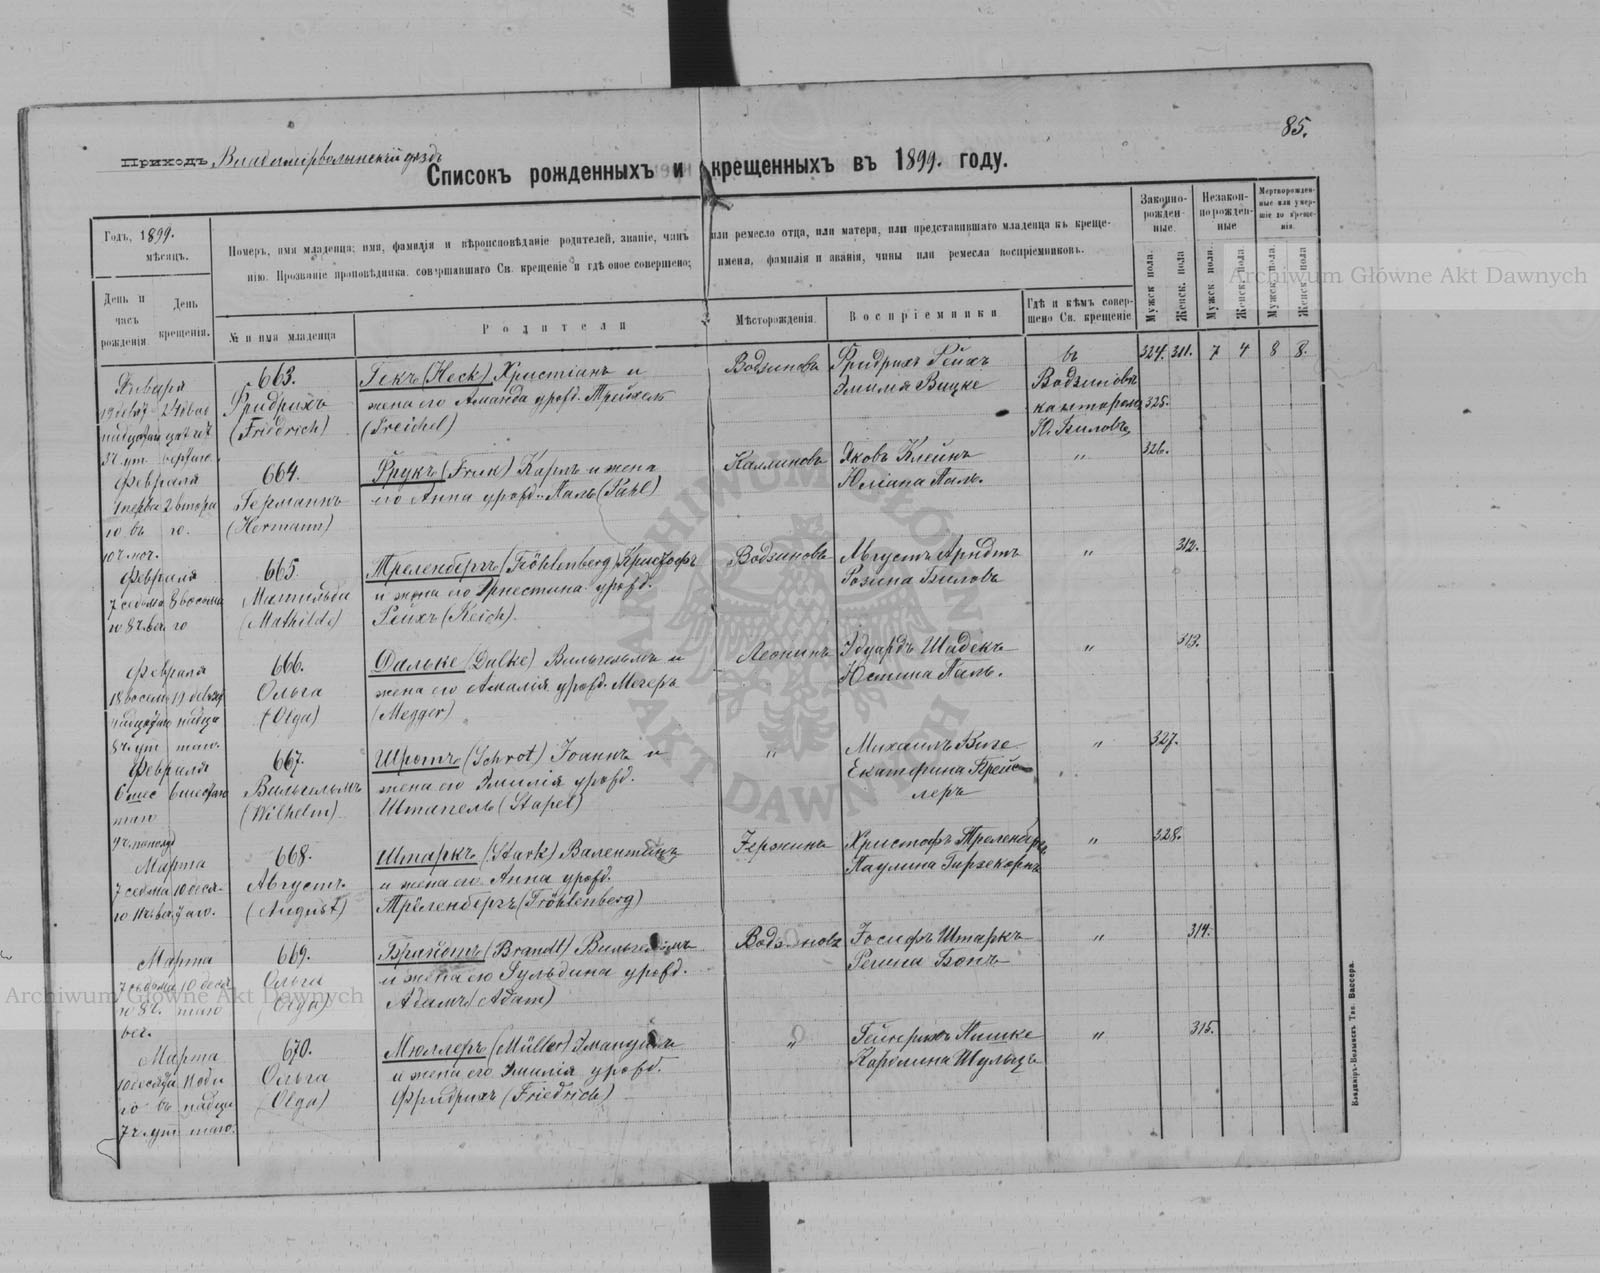 85.
Приходъ Владимірволынскій уѣздъ
Списокъ рожденныхъ и крещенныхъ въ 1899. году.
Годъ, 1899.
мѣсяцъ.
День и часъ рожденія.
День крещенія.
Номеръ, имя младенца; имя, фамилія и вѣроисповѣданіе родителей, званіе, чинъ или ремесло отца, или матери, или представившаго младенца къ креще-
нію. Прозваніе проповѣдника, совершавшаго Св. крещеніе и гдѣ оное совершено; имена, фамиліи и званія, чины или ремесла воспріемниковъ.
№ и имя младенца
Родители
Мѣсторожденія
Воспріемники
Гдѣ и кѣмъ совер-
шено Св. крещеніе
Законно-
рожден-
ные.
Незакон-
норожден-
ные
Мертворожден-
ные или умер-
шіе до креще-
нія.
Мужск. пола.
Женск. пола
Мужск. пола.
Женск. пола
Мужск. пола.
Женск. пола
324. 311. 7 4 8 8.
Января
663.
Фридрихъ
(Friedrich)
Гекъ (Heck) Христіанъ и
жена его Аманда урожд. Трейхель
(Treichel)
Водзиновъ
Фридрихъ Рейхъ
Эмилія Вицке
въ
Водзиновѣ
канторомъ
Ю. Биловъ
325.
Февраля
664.
Германнъ
(Hermann)
Фрукъ (Fruk) Карлъ и жена
его Анна урожд. Паль (Pahl)
Калиновъ
Яковъ Клейнъ
Юліана Паль.
"
326.
10 ч. ноч.
Февраля
7 седьма 8 восьма
го 8 ч. веч. го
665.
Матильда
(Mathilde)
Треленбергъ (Fröhlenberg) Кристофъ
и жена его Эрнестина урожд.
Рейхъ (Reich).
Водзиновъ
Августъ Арндтъ
Розина Биловъ
"
312.
Февраля
8 ч. ут. таго.
666.
Ольга
(Olga)
Дальке (Dalke) Вильгельмъ и
жена его Амалія урожд. Мегеръ
(Megger)
Леонинъ
Эдуардъ Шадекъ
Юстина Паль.
"
313.
Февраля
667.
Вильгельмъ
(Wilhelm)
Шротъ (Schrot) Іоаннъ и
жена его Эмилія урожд.
Штапель (Stapel)
"
Михаилъ Виге
Екатерина Прейс-
леръ
"
327.
Марта
668.
Августъ
(August)
Штаркъ (Stark) Валентинъ
и жена его Анна урожд.
Трёленбергъ (Fröhlenberg)
Кристофъ Треленбергъ
Паулина Гиржекорнъ
"
328.
Марта
7 седьма 10 деся-
го 8 ч. таго
веч.
669.
Ольга
(Olga)
Брандтъ (Brandt) Вильгельмъ
и жена его Гульдина урожд.
Адамъ (Adam)
Водзиновъ
Іосифъ Штаркъ
Регина Бопъ
"
314.
Марта
7 ч. ут. таго.
670.
Ольга
(Olga)
Мюллеръ (Müller) Эмануилъ
и жена его Эмилія урожд.
Фридрихъ (Friedrich)
"
Гейнрихъ Пашке
Каролина Шульцъ
"
315.
Владиміръ-Волынскъ Тип. Вассера.
Archiwum Główne Akt Dawnych
Archiwum Główne Akt Dawnych
ARCHIWUM GŁÓWNE AKT DAWNYCH